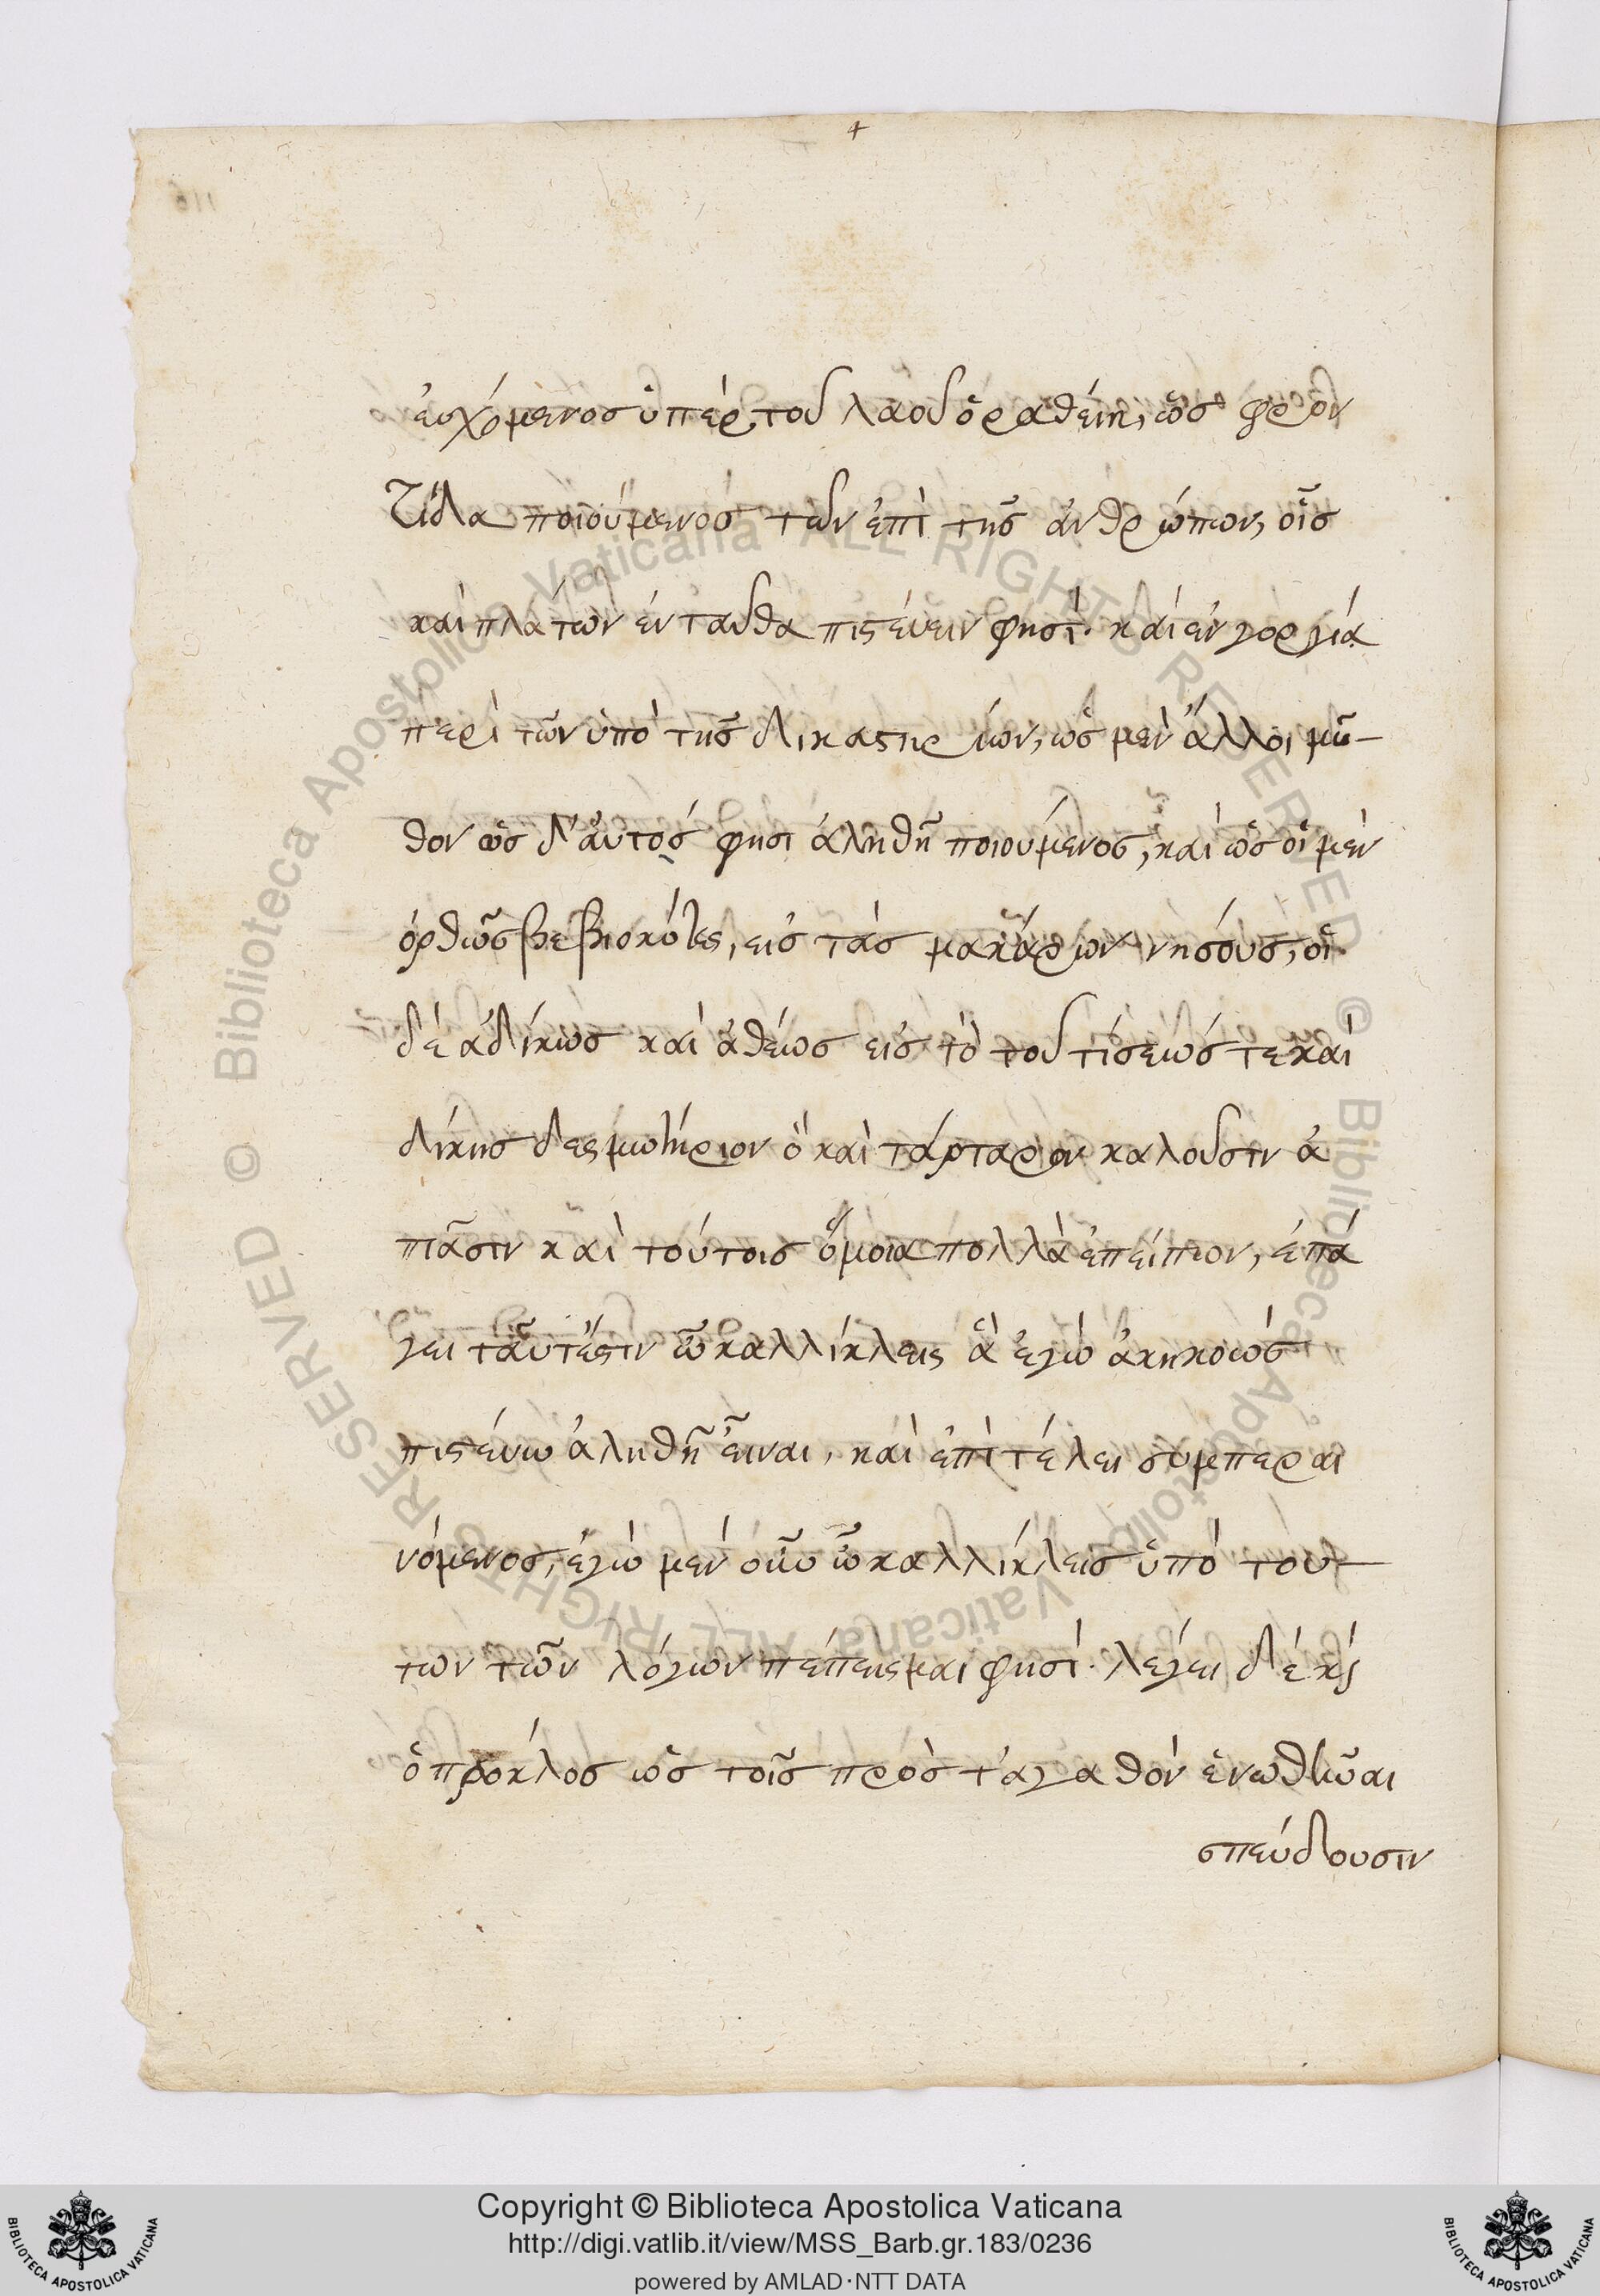 +
εὐχόμενος ὑπὲρ τοῦ λαοῦ ὁραθείη, ὡς φρον
τίδα ποιούμενος τῶν ἐπὶ τῆς ἀνθρώπων, οἷς
καὶ πλάτων ἐνταῦθα πιστεύειν φησί· καὶ ἐν γοργία
περὶ τῶν ὑπὸ τῆς δικαστηρίων, ὡς μὲν ἄλλοι μῦ-
θον ὡς δ' αὐτός φησι ἀληθῆ ποιούμενος, καὶ ὡς οἱ μὲν
ὀρθῶς βεβιοκότες, εἰς τὰς μακάρων νήσους, οἱ
δὲ ἀδίκως καὶ ἀθέως εἰς τὸ τοῦ τίσεώς τε καὶ
δίκης δεσμωτήριον ὃ καὶ τάρταρον καλοῦσιν ἀ
πᾶσιν καὶ τούτοις ὅμοια πολλὰ ἐπείπων, ἐπά
γει ταῦτ ἔστιν ὦ καλλίκλεις ἃ ἐγὼ ἀκηκοὼς
πιστεύω ἀληθῆ εἶναι, καὶ ἐπὶ τέλει συμπεραι
νόμενος, ἐγὼ μὲν οὖν ὦ καλλίκλεις ὑπὸ του-
των τῶν λόγων πέπεισμαι φησί· λέγει δὲ κ
ὁ πρόκλος ὡς τοῖς πρὸς τἀγαθὸν ἑνωθῆναι
σπεύδουσιν
116
© Biblioteca Apostolica Vaticana ALL RIGHTS RESERVED © Biblioteca Apostolica Vaticana ALL RIGHTS RESERVED
Copyright © Biblioteca Apostolica Vaticana
http://digi.vatlib.it/view/MSS_Barb.gr.183/0236
powered by AMLAD·NTT DATA
BIBLIOTECA APOSTOLICA VATICANA
BIBLIOTECA APOSTOLICA VATICANA